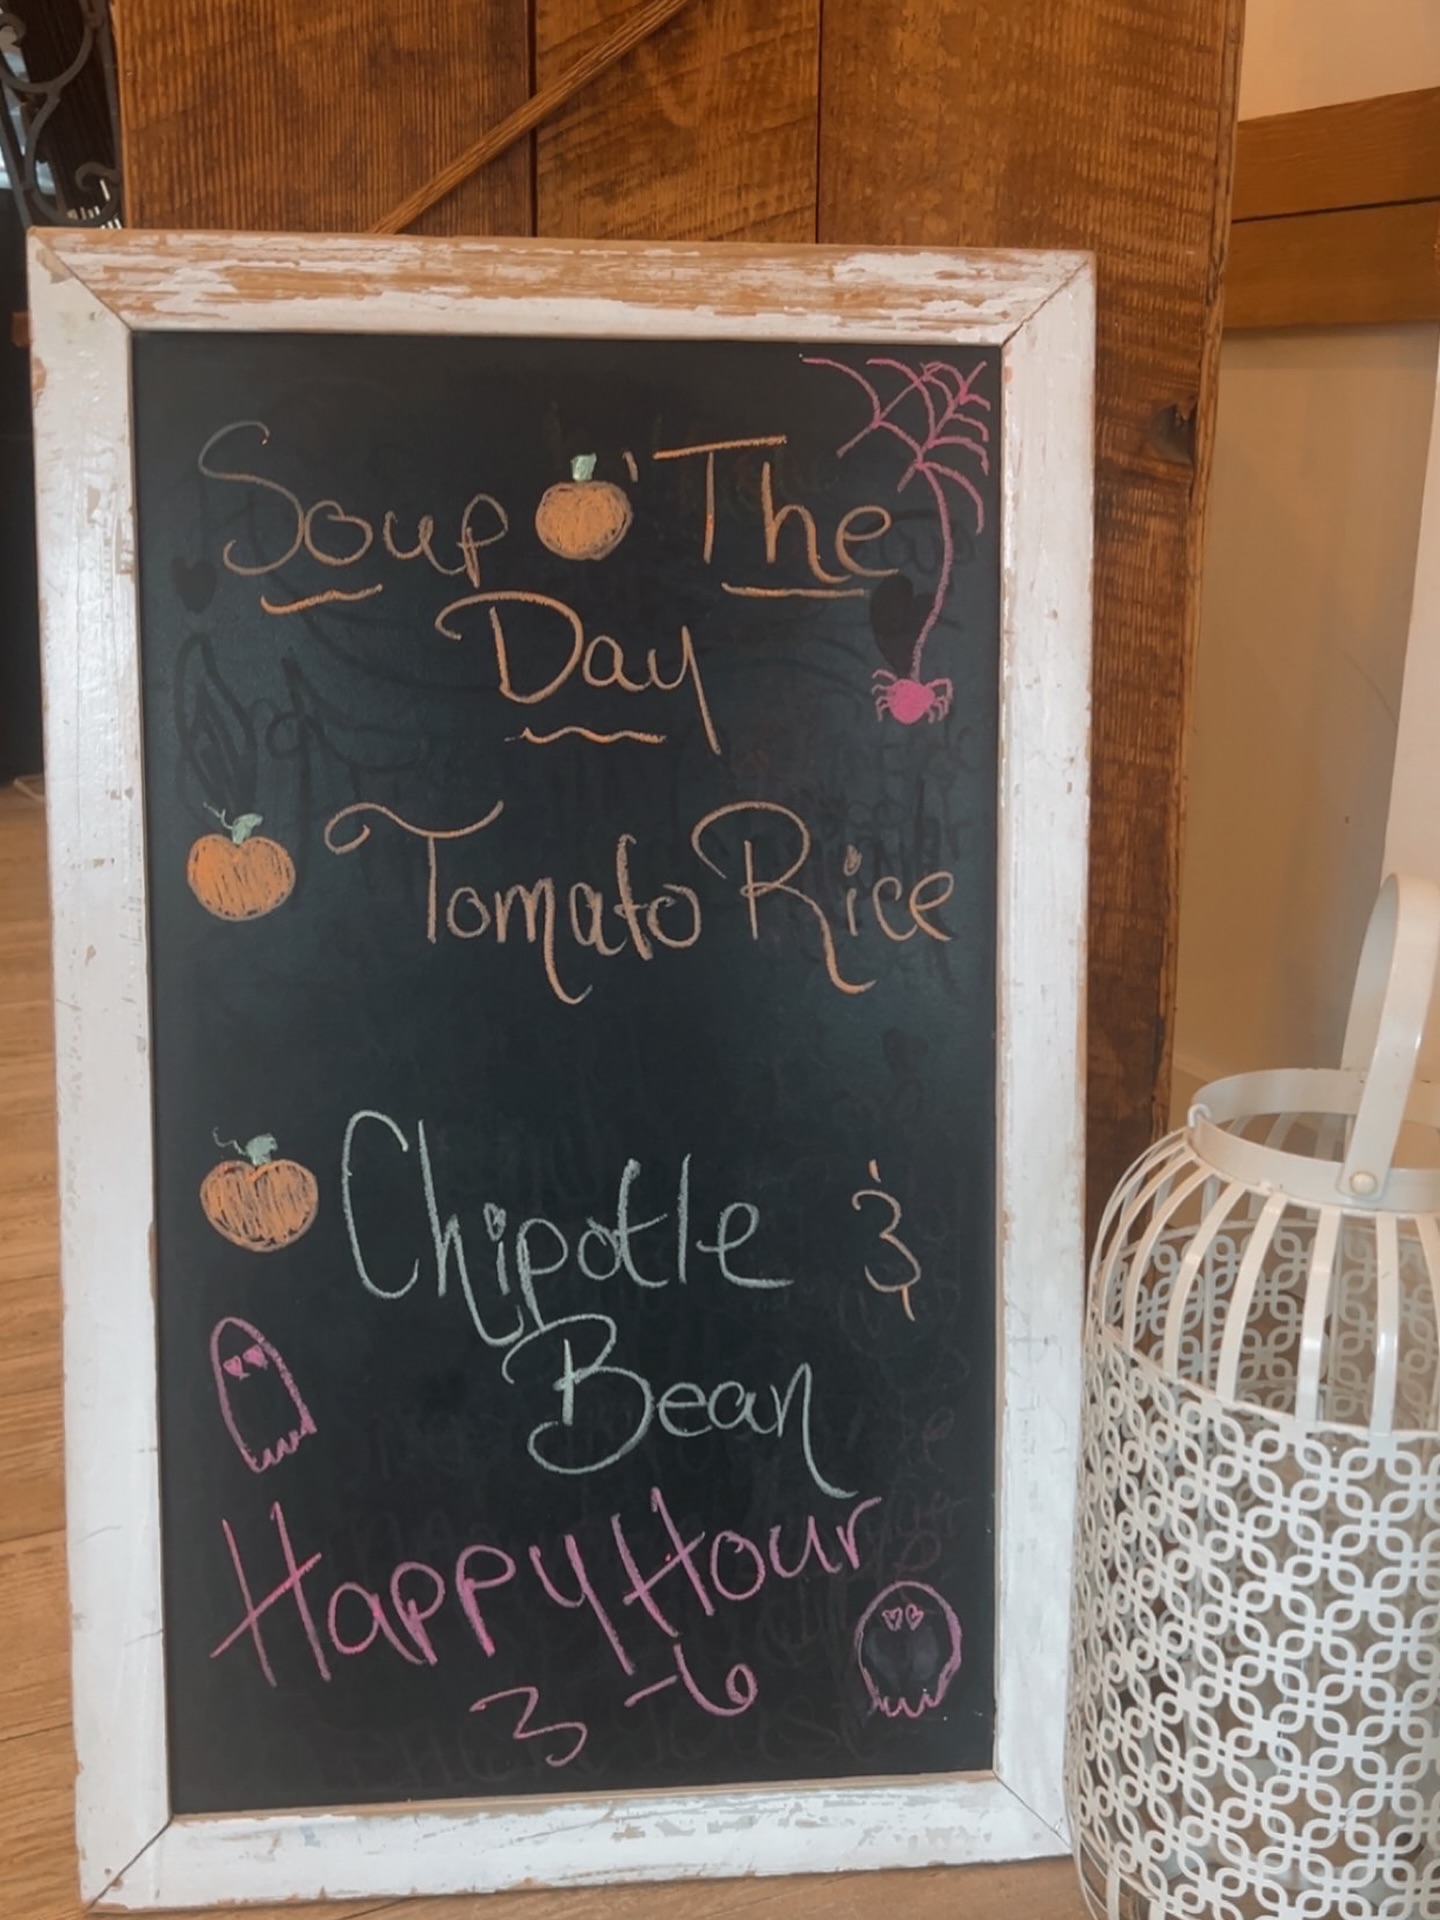 Soup O' The
Day
Tomato Rice
Chipotle &
Bean
Happy Hour
3-6